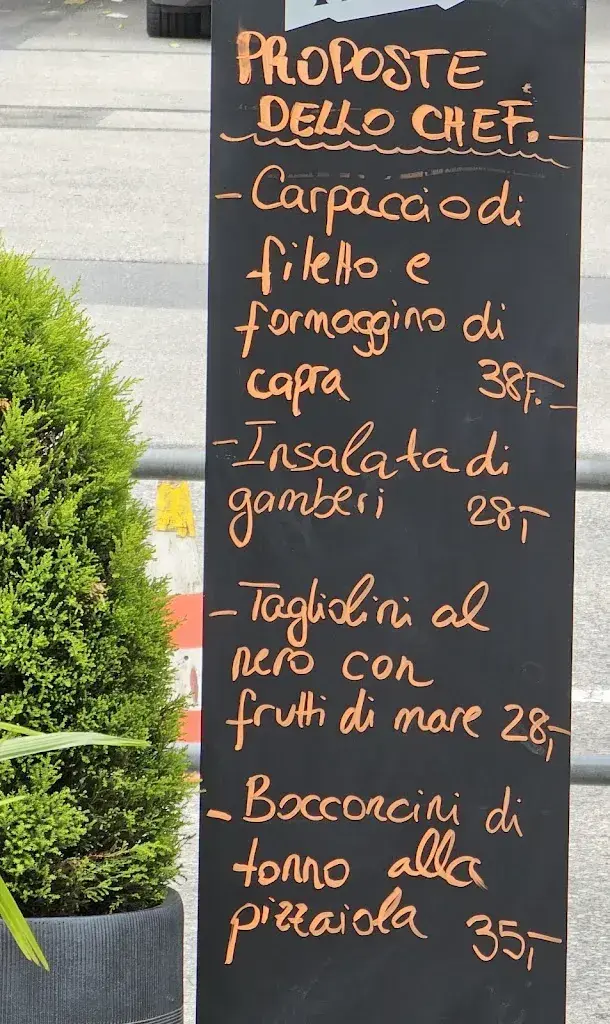 PROPOSTE
DELLO CHEF.
- Carpaccio di
filetto e
formaggino di
capra 38F.-
- Insalata di
gamberi 28,-
- Tagliolini al
nero con
frutti di mare 28,-
- Bocconcini di
tonno alla
pizzaiola 35,-